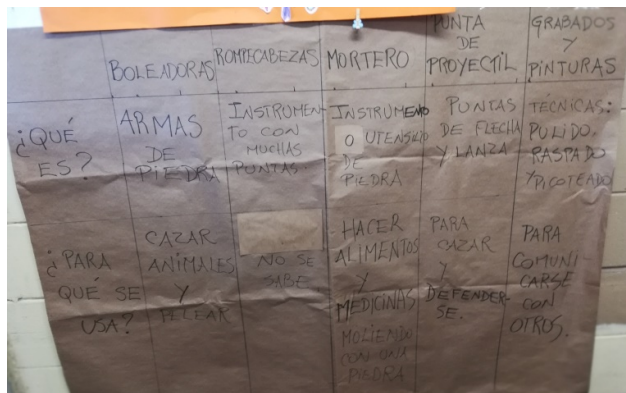 BOLEADORAS
ROMPECABEZAS
MORTERO
PUNTA
DE
PROYECTIL
GRABADOS
Y
PINTURAS
¿QUÉ
ES?
ARMAS
DE
PIEDRA
INSTRUMEN-
TO CON
MUCHAS
PUNTAS.
INSTRUMENO
O UTENSILIO
DE
PIEDRA
PUNTAS
DE FLECHA
Y LANZA
TÉCNICAS:
PULIDO,
RASPADO
Y PICOTEADO
¿PARA
QUÉ SE
USA?
CAZAR
ANIMALES
Y
PELEAR
NO SE
SABE
HACER
ALIMENTOS
Y
MEDICINAS
MOLIENDO
CON UNA
PIEDRA
PARA
CAZAR
Y
DEFENDER-
SE.
PARA
COMUNI
CARSE
CON
OTROS.